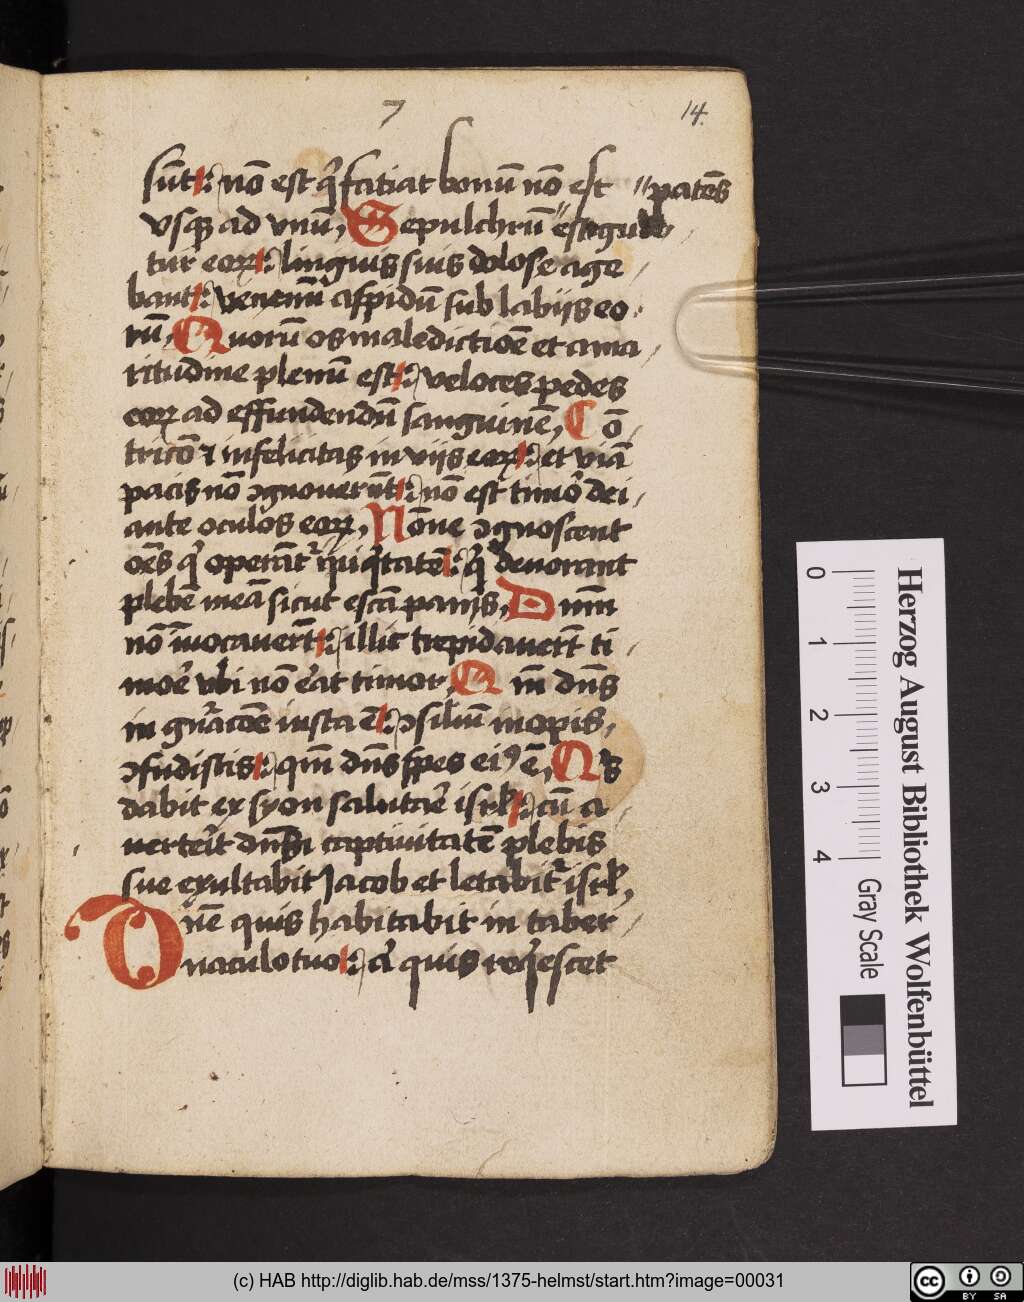 7
14.
sūt: nō est q̇ faciat bonū nō est "patēs
vsqꝫ ad vnū, Sepulchrū "est gutt
tur eoꝝ: linguis suis dolose age
bant: venenū aspidū sub labiis eo
rū, Quorū os maledictiōe et ama
ritudine plenū est: veloces pedes
eoꝝ ad effundendū sanguinē, Cō
tricō ⁊ infelicitas in viis eoꝝ: et viā
pacis nō ꝯgnouerūt: nō est timor dei
ante oculos eoꝝ, Nōne ꝯgnoscent
oēs q̇ operāt iniq̇tatē: q̇ deuorant
plebē meā sicut escā panis, Dn̄m
nō īuocauert̄: illic trepidauert̄ ti
more vbi nō erat timor, Qm̄ dn̄s
in gn̄acōe iusta ē: ꝯsiliū inopis
ꝯfudistis: qm̄ dn̄s spes eiꝰ ē, Qs
dabit ex syon salutare isrl: cū a
uerterit dn̄s captiuitatē plebis
sue exultabit Jacob et letabit isrl,
Dn̄e quis habitabit in taber
naculo tuo: aut quis req̇escet
0 1 2 3 4
Gray Scale
Herzog August Bibliothek Wolfenbüttel
(c) HAB http://diglib.hab.de/mss/1375-helmst/start.htm?image=00031
cc BY SA